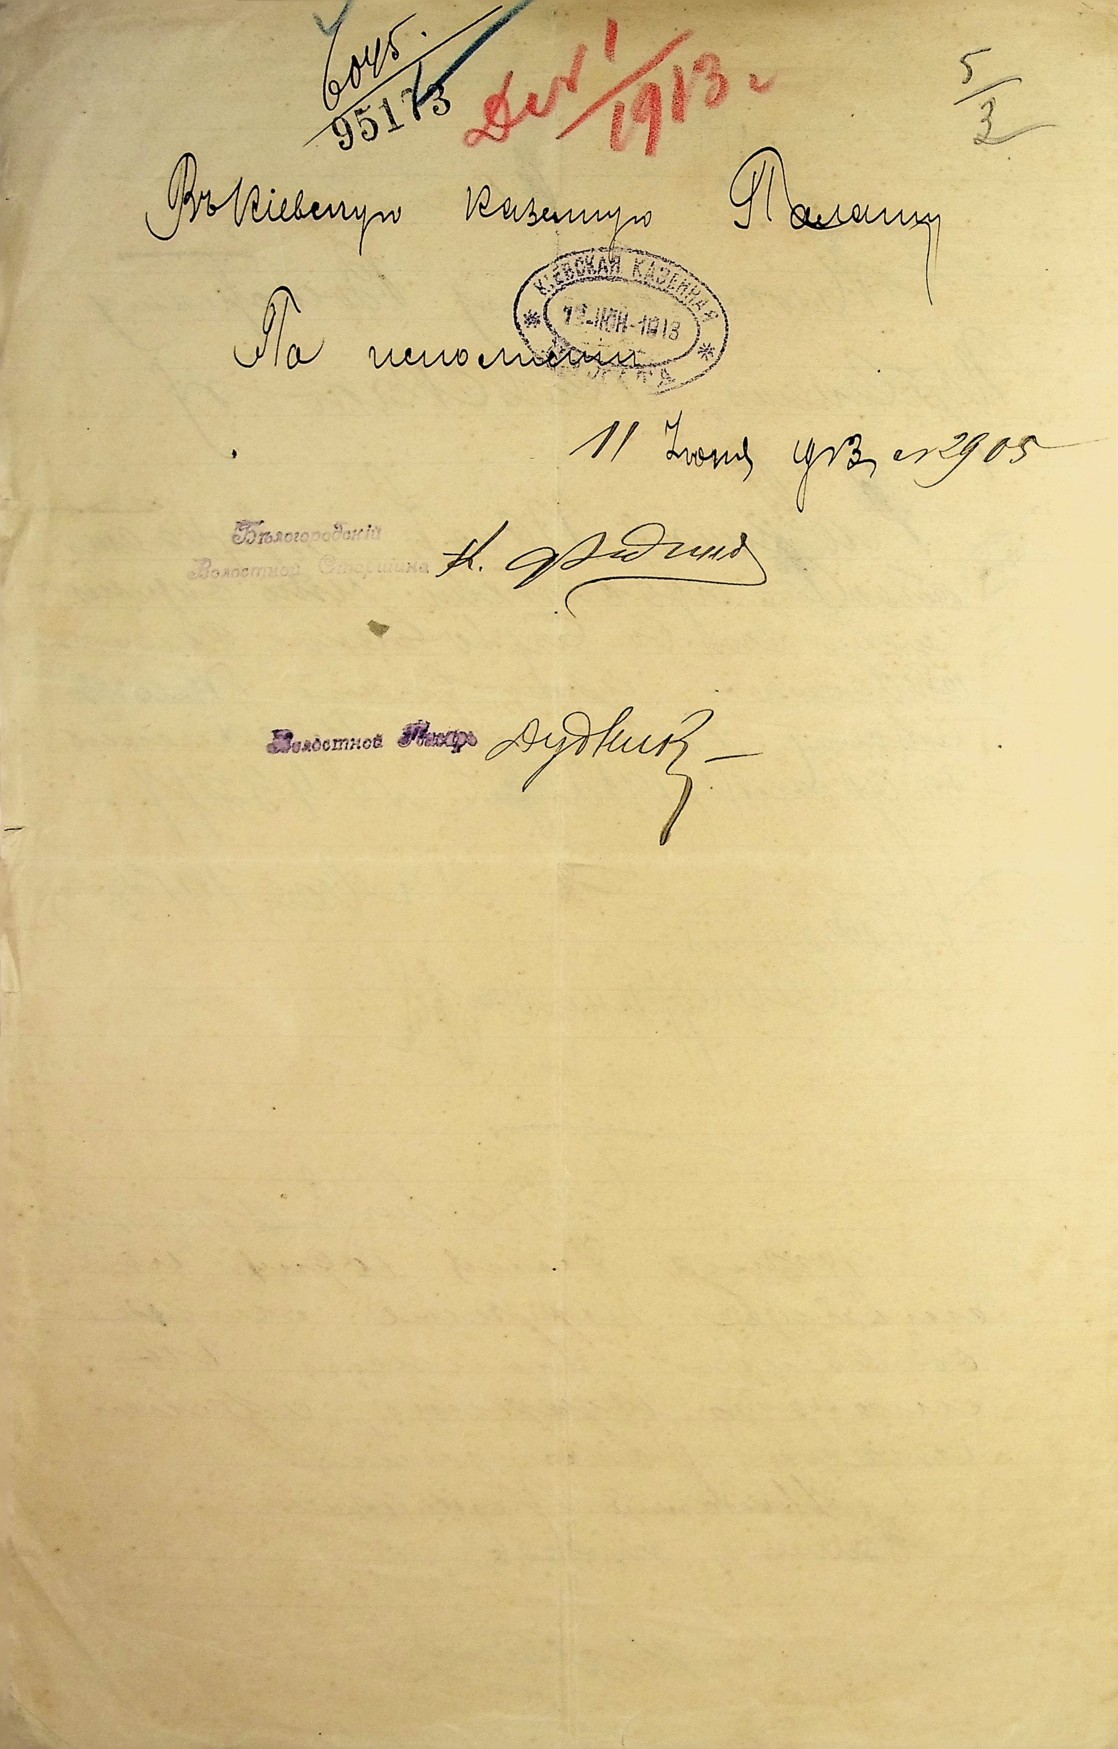 6045.
95173
Дѣл 1/1913 г
5/3
Въ Кіевскую Казенную Палату
КІЕВСКАЯ КАЗЕННАЯ ПАЛАТА
12 ІЮН 1913
По исполненіи
11 Іюня 1913 № 2905
Бѣлогородскій
Волостной Старшина К.
Волостной Писарь Дудникъ